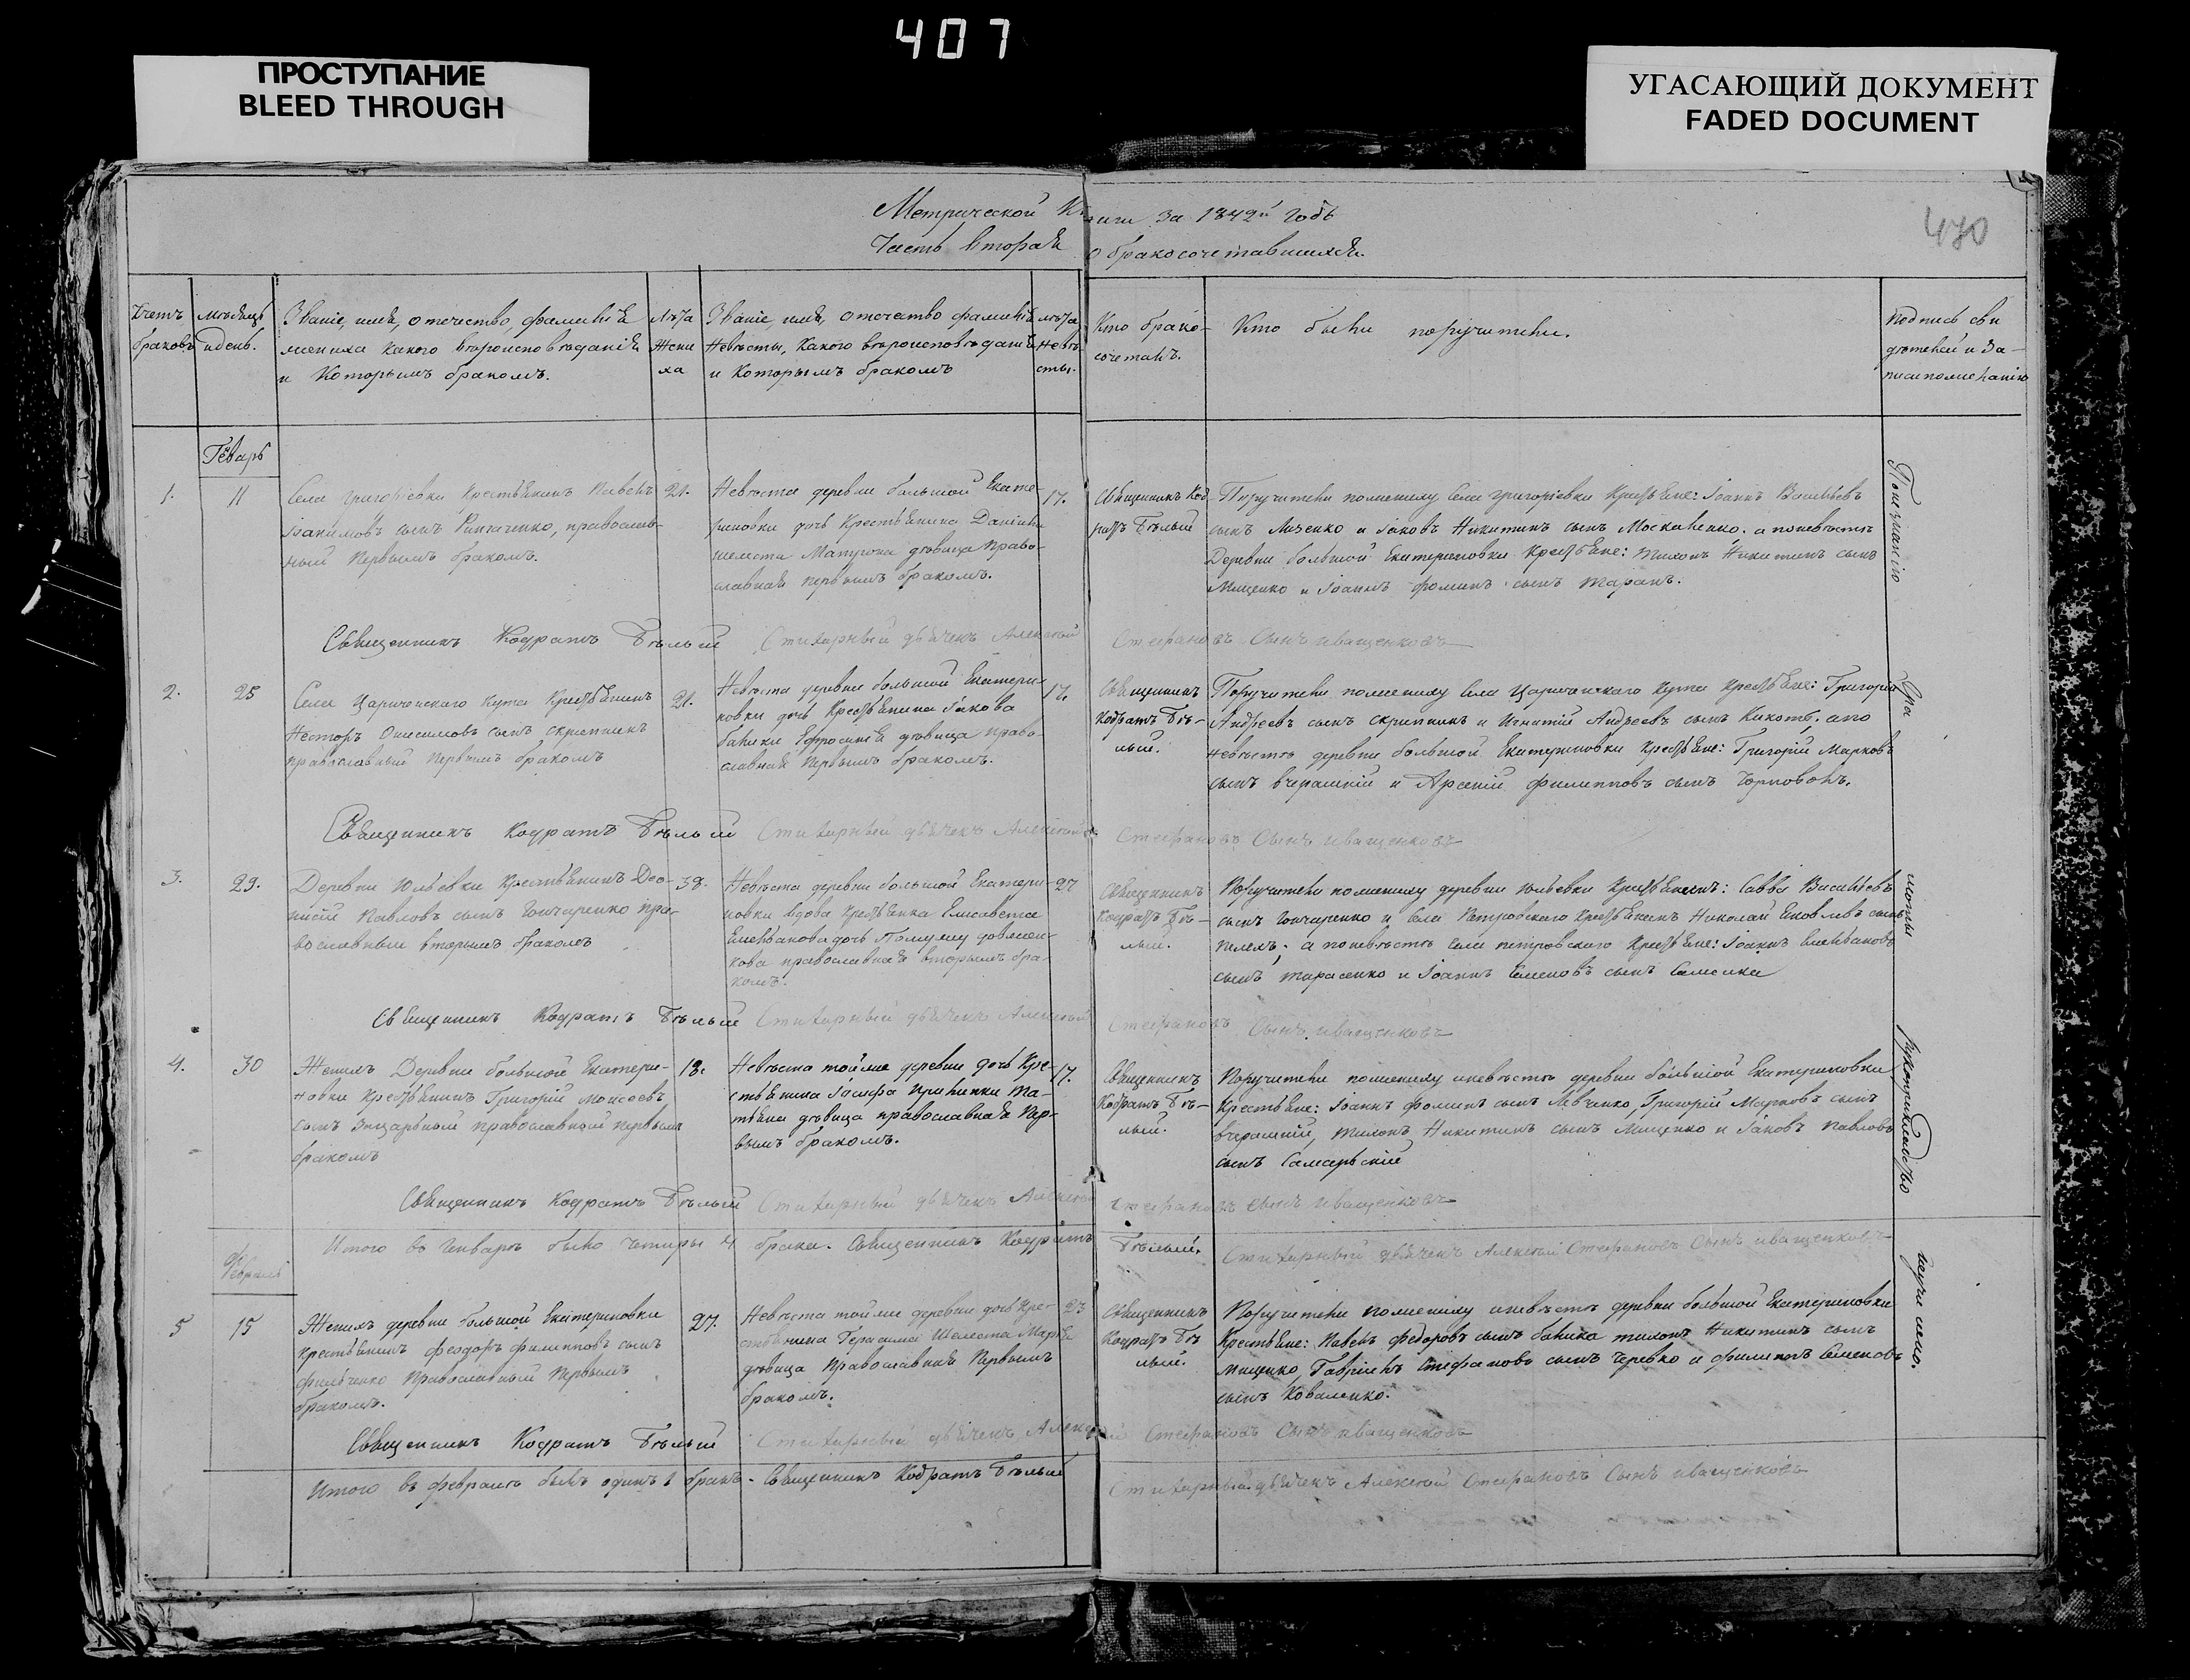 407
ПРОСТУПАНИЕ
BLEED THROUGH
УГАСАЮЩИЙ ДОКУМЕНТ
FADED DOCUMENT
470
Метрической Книги за 1842й годъ
Часть вторая о бракосочетавшихся.
Счетъ браковъ
мѣсяцъ и день.
Званіе, имя, отечество, фамилія
жениха какого вѣроисповѣданія
и которымъ бракомъ.
лѣта
жени
ха
Званіе, имя, отечество фамилія
невѣсты, какого вѣроисповѣданія
и которымъ бракомъ
лѣта
невѣ-
сты.
Кто брако-
сочеталъ.
Кто были поручители.
подпись сви
дѣтелей и за-
писи по желанію
Генварь
1.
11
Села григоріевки крестьянинъ Павелъ
Іоакимовъ сынъ православ-
ный первымъ бракомъ.
21.
Невѣста деревни большой Екате-
риновки дочь крестьянина Даніила
шелеста Матрона дѣвица право-
славная первымъ бракомъ.
17.
Священникъ Код-
ратъ Бѣлый
Поручители по жениху села григорієвки крестьяне: Іоаннъ Васильевъ
сынъ Лизенко и Іаковъ Никитинъ сынъ Москаленко. а по невѣстѣ
Деревни большой Екатериновки крестьяне: тихонъ Никитинъ сынъ
Мищенко и Іоаннъ фоминъ сынъ таранъ.
Священникъ Кодратъ Бѣлый Стихарный дьячекъ Алексѣй Стефановъ Сынъ иващенковъ
2.
25
Села Царичанского Кута крестьянинъ
Несторъ Онисимовъ сынъ скрипникъ
православный первымъ бракомъ
21.
Невѣста деревни большой Екатери-
новки дочь крестьянина Іакова
балики Ефросинія дѣвица право-
славная первымъ бракомъ.
17.
Священникъ
Кодратъ Бѣ-
лый.
Поручители по жениху села Царичанского Кута крестьяне: Григорій
Андреевъ сынъ скрипникъ и Игнатій Андреевъ сынъ а по
невѣстѣ деревни большой Екатериновки крестьяне: Григорій Марковъ
сынъ вчерашній и Арсеній филипповъ сынъ Чорноволъ.
Священникъ Кодратъ Бѣлый Стихарный дьячекъ Алексѣй Стефановъ Сынъ иващенковъ
3.
29.
Деревни Юльевки крестьянинъ Део-
нисій Павловъ сынъ Гончаренко пра-
вославный вторымъ бракомъ
38.
Невѣста деревни большой Екатери-
новки вдова крестьянка Елисавета
Емельянова дочь По мужу довжен-
кова православная вторымъ бра-
комъ.
27
Священникъ
Кодратъ Бѣ-
лый.
Поручители по жениху деревни юльевки крестьянинъ: Савва Васильевъ
сынъ Гончаренко и села Петровского крестьянинъ Николай Яковлевъ сынъ
а по невѣстѣ села петровского крестьяне: Іоаннъ Емельяновъ
сынъ тарасенко и Іоаннъ Семеновъ сынъ
Священникъ Кодратъ Бѣлый Стихарный дьячекъ Алексѣй Стефановъ Сынъ иващенковъ
4.
30
Женихъ Деревни большой Екатери-
новки крестьянинъ Григорій Моисеевъ
сынъ православный первымъ
бракомъ
18.
Невѣста той же деревни дочь кре-
стьянина Іосифа Та-
тьяна дѣвица православная пер-
вымъ бракомъ.
17.
Священникъ
Кодратъ Бѣ-
лый.
Поручители по жениху и невѣстѣ деревни большой Екатериновки
крестьяне: Іоаннъ фоминъ сынъ Левченко, Григорій Марковъ сынъ
вчерашній, тихонъ Никитинъ сынъ Мищенко и Іаковъ Павловъ
сынъ Самарьскій
Священникъ Кодратъ Бѣлый Стихарный дьячекъ Алексѣй Стефановъ Сынъ иващенковъ
Итого въ Генварѣ было четыри 4 брака. Священникъ Кодратъ Бѣлый. Стихарный дьячекъ Алексѣй Стефановъ Сынъ иващенковъ
Февраль
5
15
Женихъ деревни большой Екатериновки
крестьянинъ феодоръ филипповъ сынъ
фильченко православный первымъ
бракомъ.
27.
Невѣста той же деревни дочь кре-
стьянина Герасима Шелеста Марія
дѣвица православная первымъ
бракомъ.
23
Священникъ
Кодратъ Бѣ
лый.
Поручители по жениху и невѣстѣ деревни большой Екатериновки
Крестьяне: Павелъ федоровъ сынъ балика тихонъ Никитинъ сынъ
мищенко, Гавріилъ Стефановъ сынъ Черевко и филиппъ Семеновъ
сынъ Коваленко.
Священникъ Кодратъ Бѣлый Стихарный дьячекъ Алексѣй Стефановъ Сынъ иващенковъ
Итого въ февралѣ былъ одинъ 1 бракъ. Священникъ Кодратъ Бѣлый Стихарный дьячекъ Алексѣй Стефановъ Сынъ иващенковъ
По незнанію
грамоты
рукоприкладство